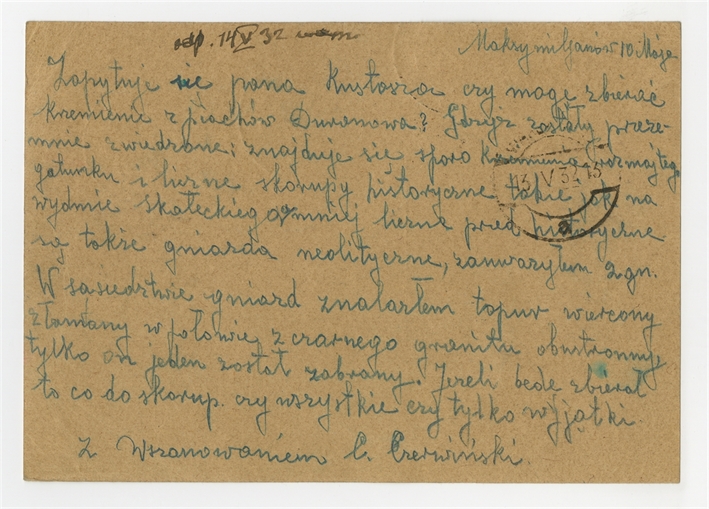 odp. 14 V 32
Maksymiljanów 10 Maja
Zapytuję się pana Kustosza czy mogę zbierać
krzemienie z piachów Duranowa? Gdzyż zostały przeze-
mnie zwiedzone; znajduje się sporo krzmienia rozmajtego
gatunku i liczne skorupy historyczne takie jak na
wydmie skałeckiego mniej liczne pred historyczne
są także gniazda neolityczne, zauwarzyłem 2 gn.
W sąsiedztwie gniazd znalazłem topur wiercony
złamany w połowie, z czarnego granitu obustronny,
tylko on jeden został zabrany. Jezeli bede zbierał
to co do skorup. czy wszystkie czy tylko wyjątki.
Z Wszanowaniem C. Czerwiński.
13 V 32 15
a